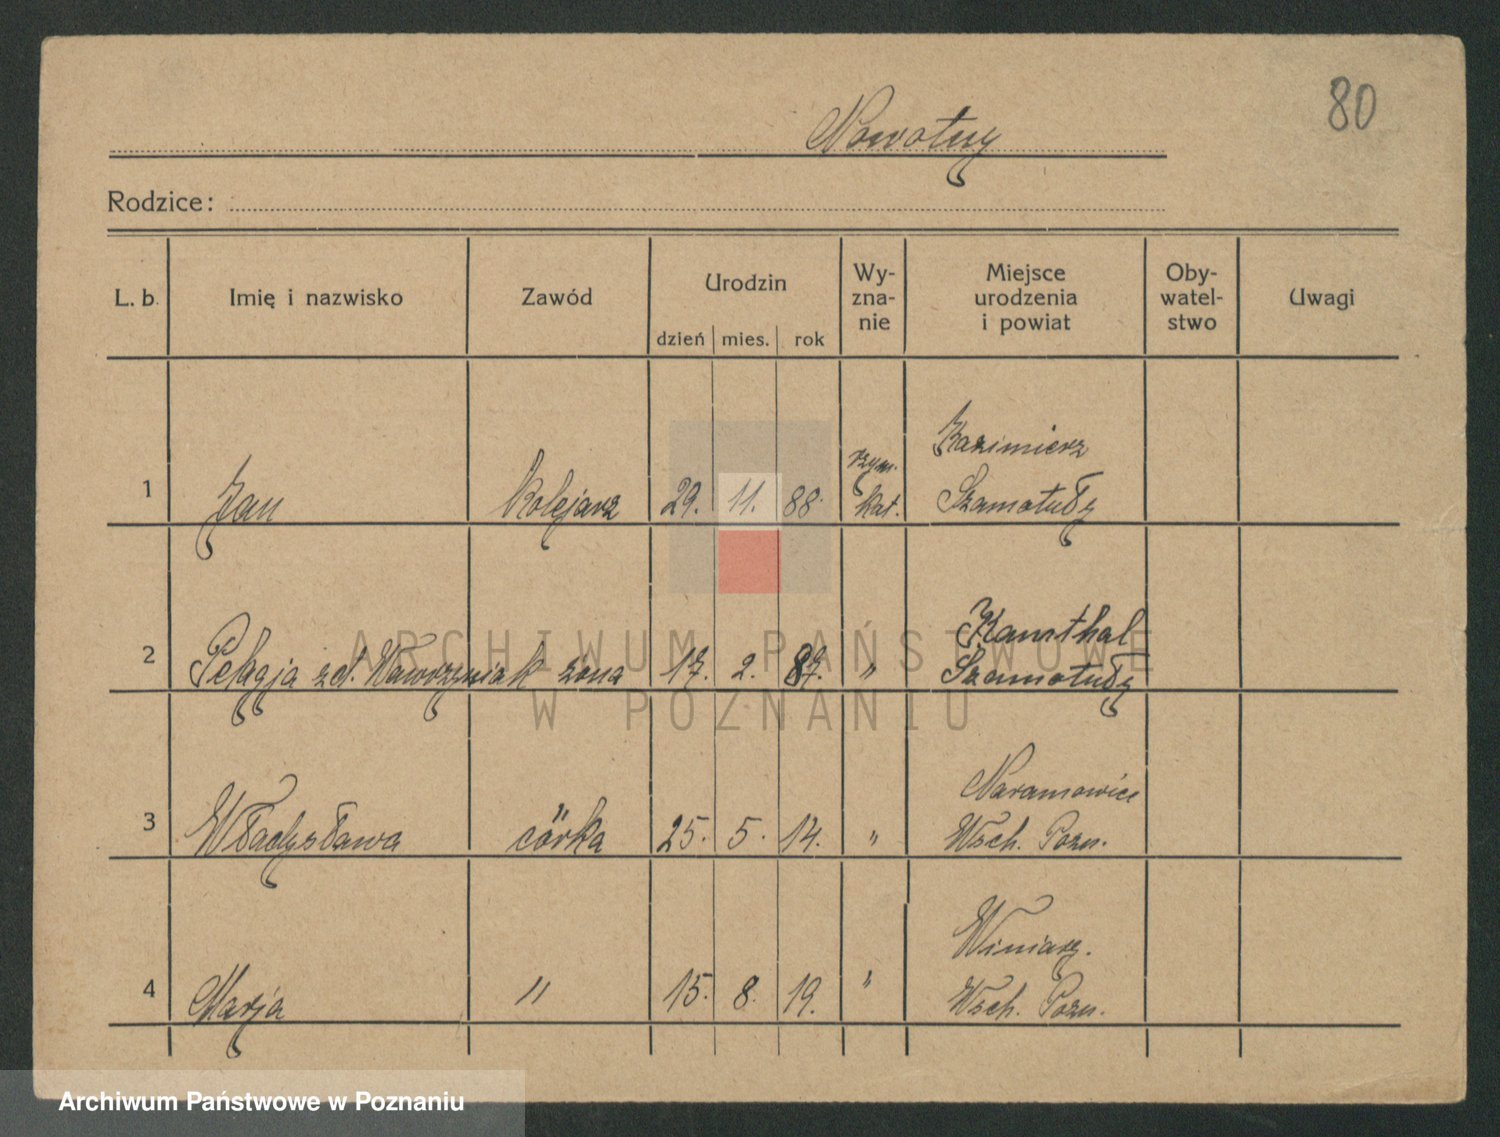 80
Nowotny
Rodzice:
L. b. Imię i nazwisko Zawód Urodzin Wy- Miejsce Oby- Uwagi
zna- urodzenia watel-
nie i powiat stwo
dzień mies. rok
rzym. Kazimierz
1 Jan kolejarz 29. 11. 88. kat. Szamotuły
2 Pelagja zd. Wawrzyniak żona 17. 2. 87. " Szamotuły
Naramowice
3 Władysława córka 25. 5. 14. " Wsch. Pozn.
Winiary.
4 Marja " 15. 8. 19. " Wsch. Pozn.
ARCHIWUM PAŃSTWOWE
W POZNANIU
Archiwum Państwowe w Poznaniu